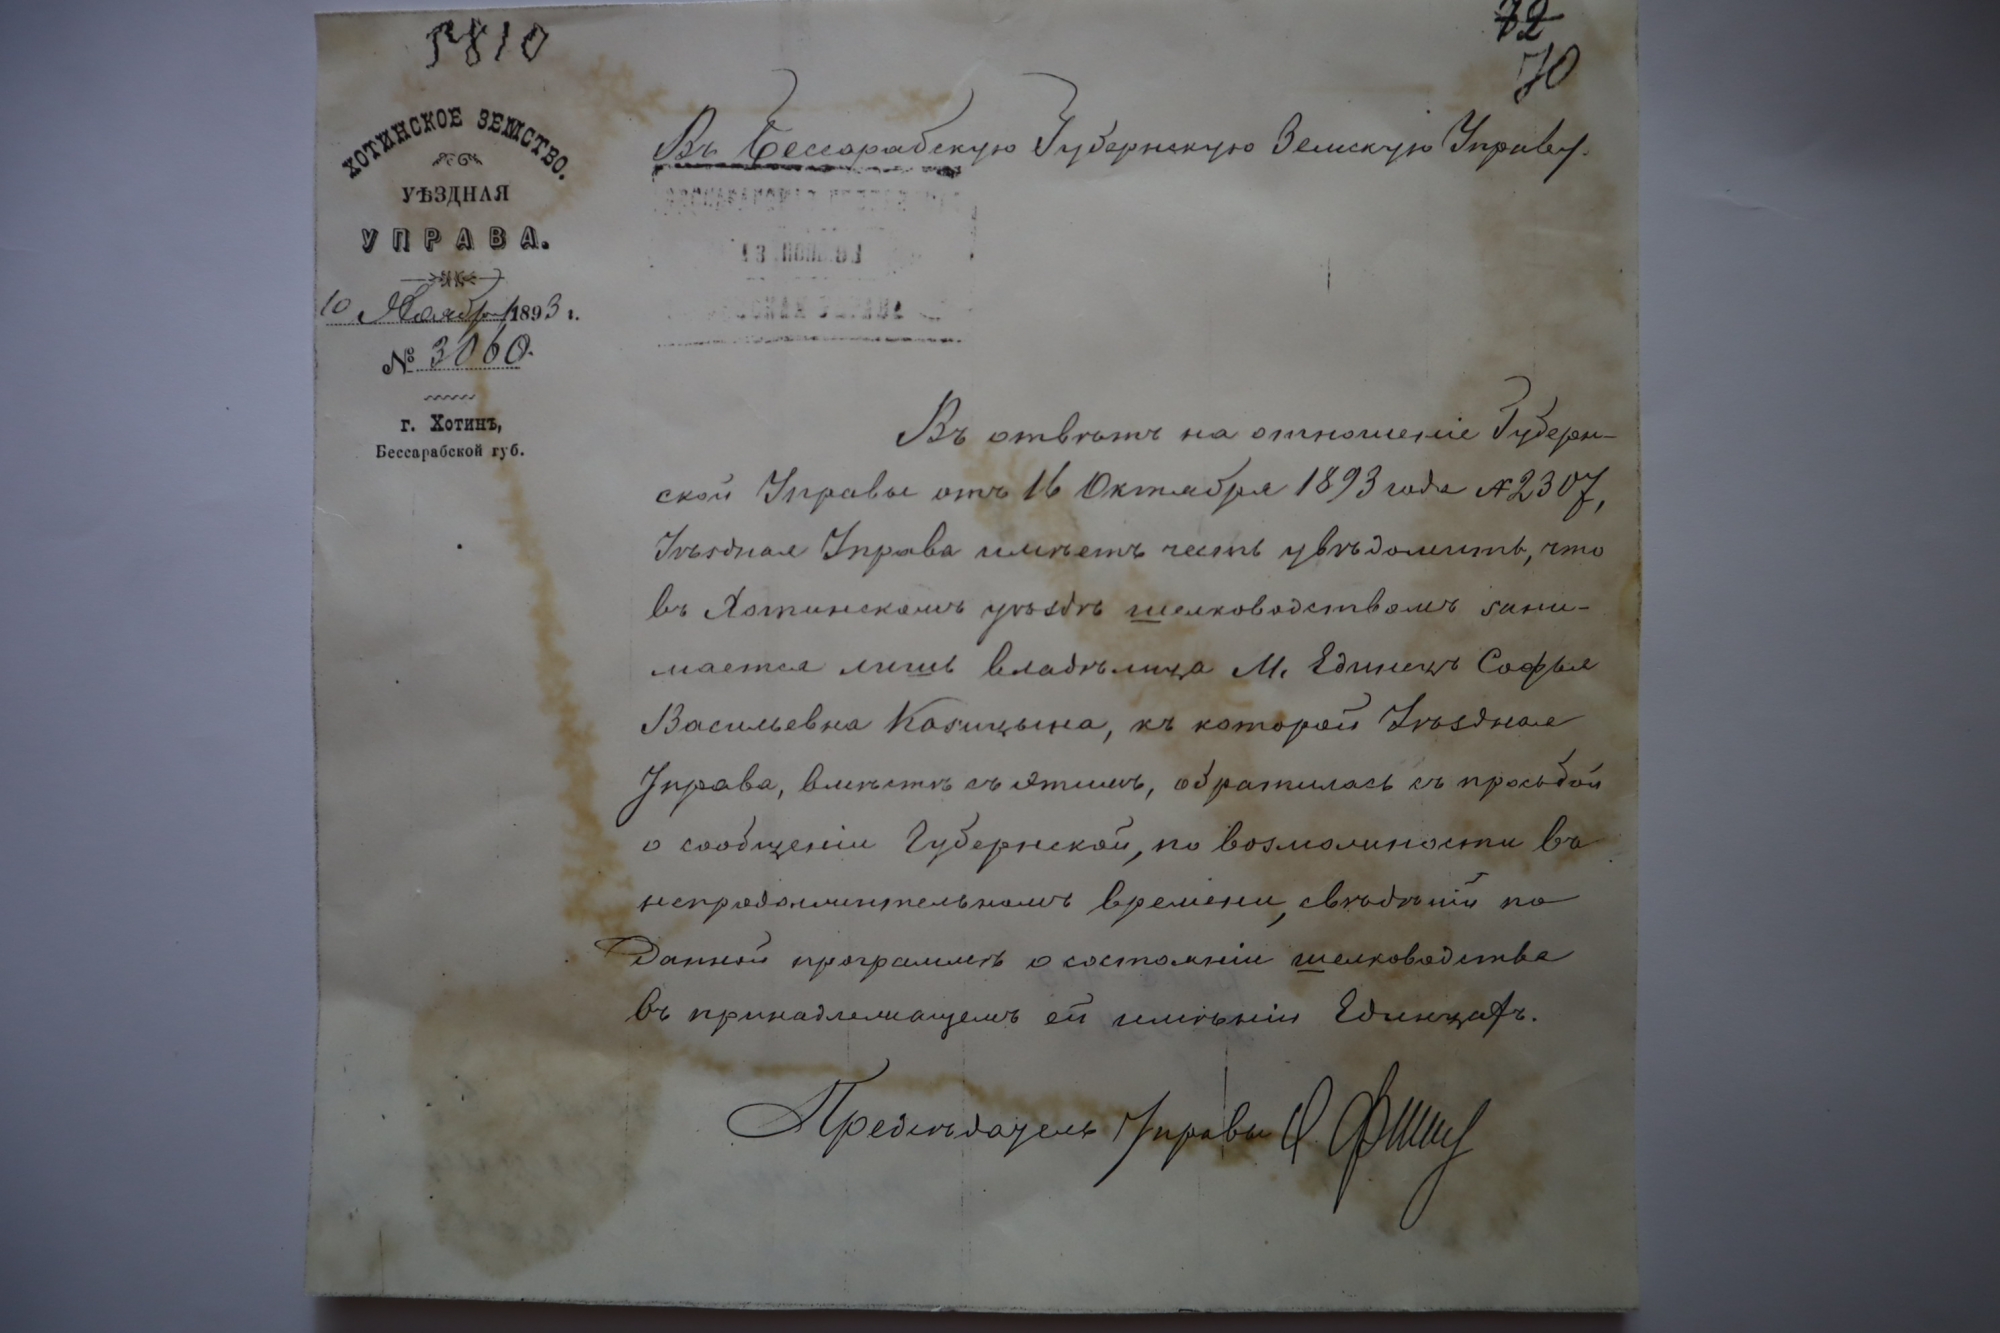 5810
72
70
ХОТИНСКОЕ ЗЕМСТВО.
УѢЗДНАЯ
УПРАВА.
10 Ноября 1893 г.
№ 3060.
г. Хотинъ,
Бессарабской губ.
Въ Бессарабскую Губернскую Земскую Управу.
Въ отвѣтъ на отношеніе Губерн-
ской Управы отъ 16 Октября 1893 года № 2307,
Уѣздная Управа имѣетъ честь увѣдомить, что
въ Хотинскомъ уѣздѣ шелководствомъ зани-
мается лишь владѣлица М. Единецъ Софья
Васильевна Казицына, къ которой Уѣздная
Управа, вмѣстѣ съ этимъ, обратилась съ просьбой
о сообщеніи Губернской, по возможности въ
непродолжительномъ времени, свѣдѣній по
данной программѣ о состояніи шелководства
въ принадлежащемъ ей имѣніи Единцахъ.
Предсѣдатель Управы